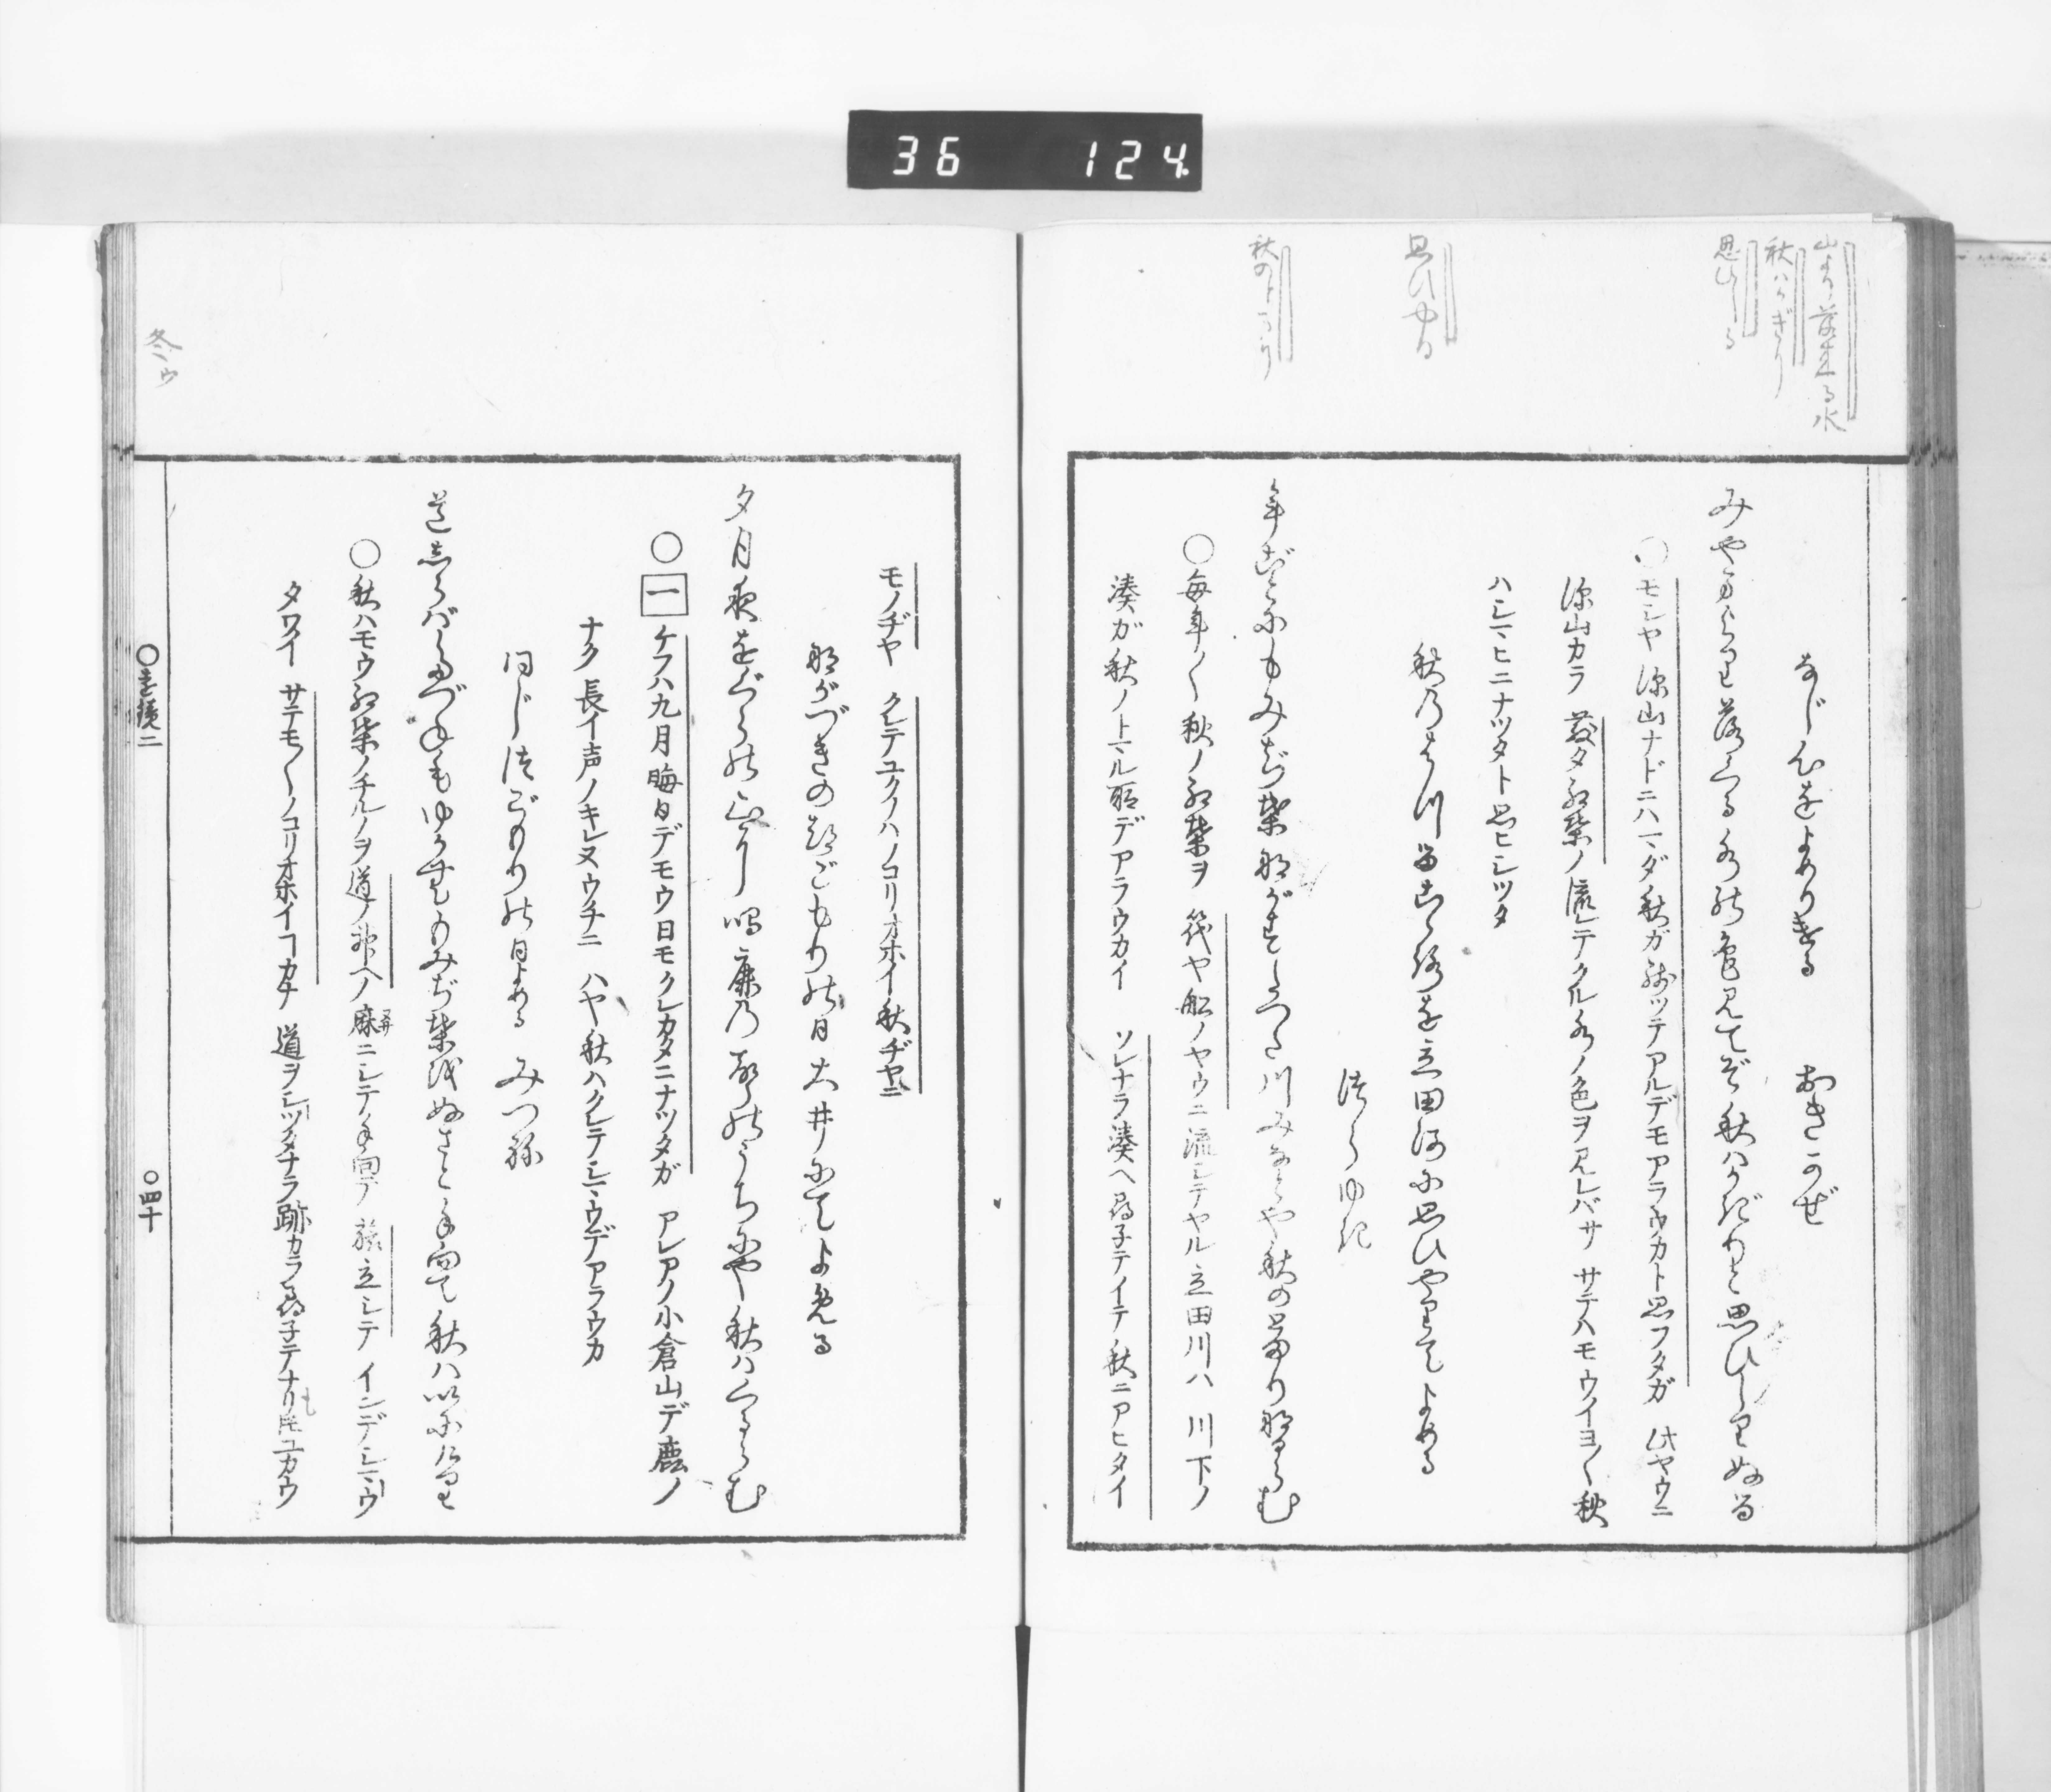 36 124
山より落来る水
秋ハかぎり
思ひしる
思ひやる
秋のトマリ
おなじ心をよめりける おきかぜ
みやまより落くる水の色見てぞ秋ハかぎりと思ひしりぬる
○モシヤ深山ナドニハマダ秋ガ残ツテアルデモアラウカト思フタガ 此ヤウニ
深山カラ 散タ紅葉ノ流レテクル水ノ色ヲ見レバサ サテハモウイヨ〳〵秋
ハシマヒニナツタト思ヒシツタ
秋のはつるこゝろを立田河に思ひやりてよめる
つらゆき
年ごとにもみぢ葉ながすたつた川みなとや秋のとまりなるらむ
○毎年〳〵秋ノ紅葉ヲ 筏ヤ船ノヤウニ流シテヤル立田川ハ 川下ノ
湊ガ秋ノトマル所デアラウカイ ソレナラ湊ヘ尋子テイテ秋ニアヒタイ
モノヂヤ クレテユクノハノコリオホイ秋ヂヤニ
ながづきの晦ごもりの日大井にてよめる
夕月夜をぐらの山に鳴鹿の聲のうちにや秋ハくるらむ
○一ケフハ九月晦日デモウ日モクレカタニナツタガ アレアノ小倉山デ鹿ノ
ナク長イ声ノキレヌウチニ ハヤ秋ハクレテシマウデアラウカ
同じつごもりの日よめる みつね
道しらバたづねもゆかむもみぢ葉をぬさと手向て秋ハいにけり
○秋ハモウ紅葉ノチルノヲ道ノ神ヘノ麻ニシテ手向テ 旅立シテ インデシマウ
タワイ サテモ〳〵ノコリオホイコカナ 道ヲシツタナラ跡カラ尋子テナリ𪜈ユカウ
冬ウ
○遠鏡二
○四十